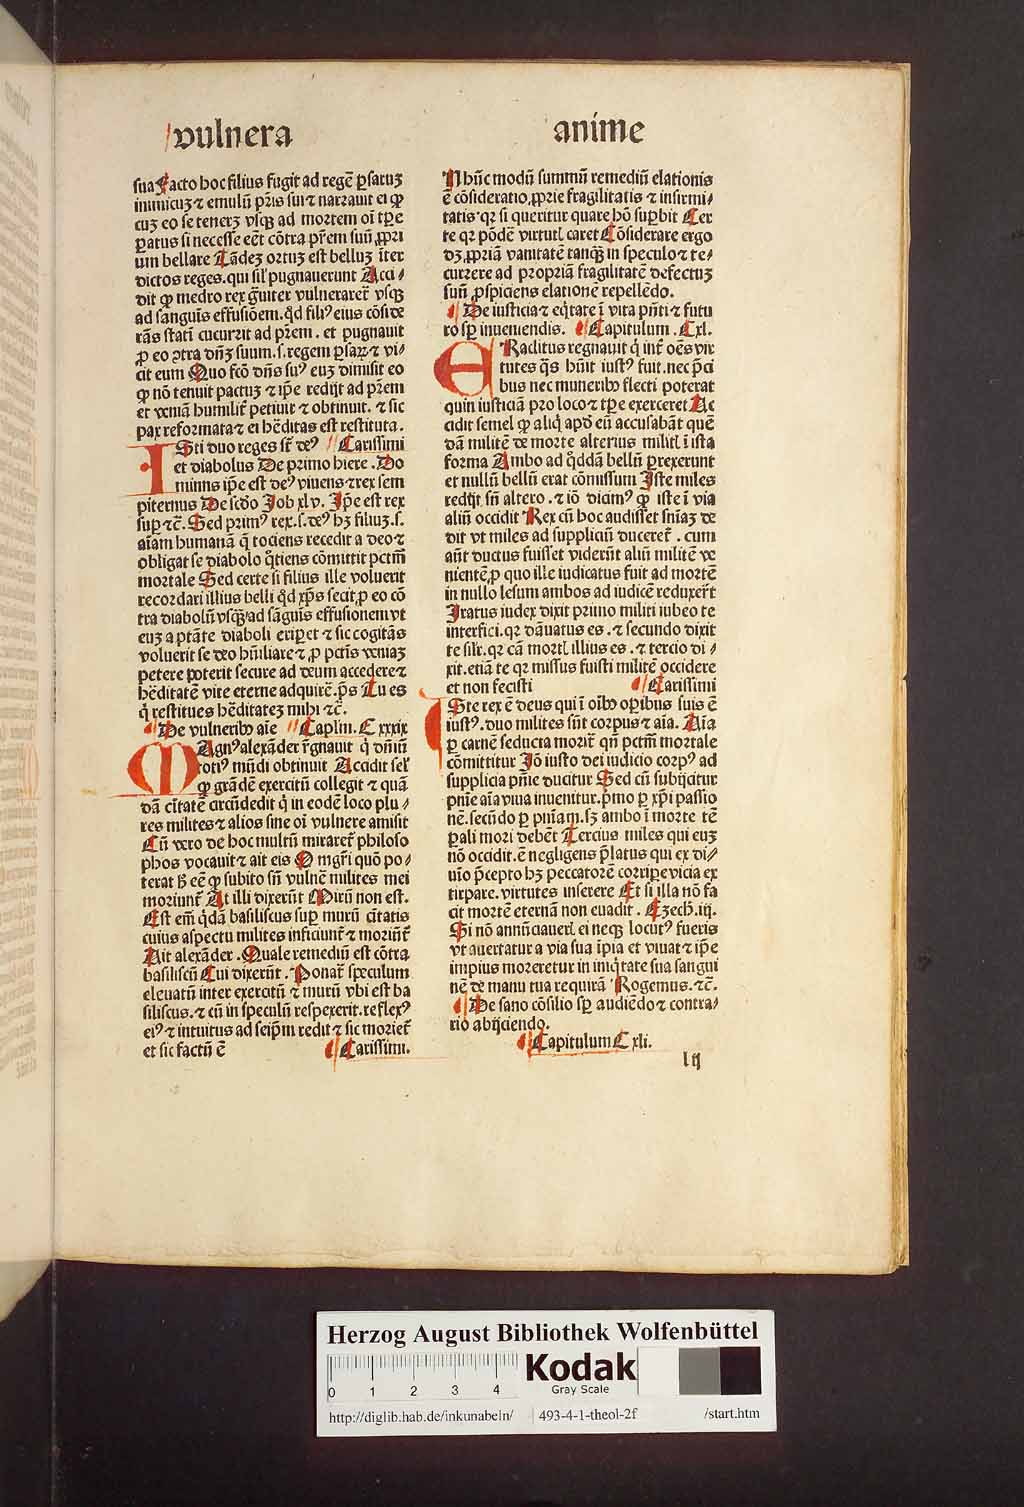 vulnera anime
sua Facto hoc filius fugit ad regē ꝑsaruꝫ
inimicuꝫ ⁊ emulū pr̄is sui ⁊ narrauit ei ꝙ
cuꝫ eo se tenerꝫ vsqꝫ ad mortem oī tꝑe
ꝑatus si necesse eēt cōtra pr̄em suū ꝓpri
um bellare Tādeꝫ ortuꝫ est belluꝫ īter
dictos reges. qui sil' pugnauerunt Acci⸗
dit ꝙ medro rex gͣuiter vulneraret᷑ vsqꝫ
ad sanguis effusiōem. qd̛ fili⁹ eius cōside
rās statī cucurrit ad pr̄em. et pugnauit
ꝓ eo ꝯtra dn̄ꝫ suum .s. regem ꝑsaꝝ ⁊ vi⸗
cit eum Quo fcō dn̄s su⁹ euꝫ dimisit eo
ꝙ nō tenuit pactuꝫ ⁊ ip̄e redijt ad pr̄em
et veniā humilit᷑ petiuit ⁊ obtinuit. ⁊ sic
pax reformata ⁊ ei hēditas est restituta.
ISti duo reges sr̄ de⁹ Carissimi
et diabolus De primo hiere. Do
minus ip̄e est de⁹ viuens ⁊ rex sem
piternus De scd̛o Job xlv. Ip̄e est rex
suꝑ ⁊c̄. Sed prim⁹ rex .s. de⁹ hꝫ filiuꝫ .s.
aīam humanā q̄ tociens recedit a deo ⁊
obligat se diabolo qͥtiens cōmittit pctm̄
mortale Sed certe si filius ille voluerit
recordari illius belli qd̛ xp̄s fecit, ꝓ eo cō
tra diabolū vsqꝫ ad sāguis effusionem vt
euꝫ a ptāte diaboli eriꝑet ⁊ sic cogitās
voluerit se deo hūiliare ⁊ ꝓ pctīs veniaꝫ
petere poterit secure ad deum accedere ⁊
hēditatē vite eterne adquirē. ps̄ Tu es
qͥ restitues hēditateꝫ mihi ⁊c̄.
De vulnerib⁹ aīe Caplm̄. Cxxxix
MAgn⁹ alexāder rͤgnauit qͥ dn̄iū
toti⁹ mūdi obtinuit Accidit sel'
ꝙ grādē exercitū collegit ⁊ quā
dā cītatē circūdedit qͥ in eodē loco plu⸗
res milites ⁊ alios sine oī vulnere amisit
Cū vero de hoc multū miraret᷑ philoso
phos vocauit ⁊ ait eis O mgr̄i quō po⸗
terat h̄ eē ꝙ subito sn̄ vulnē milites mei
moriunt᷑ At illi dixerūt Mirū non est.
Est em̄ qͥdā basiliscus suꝑ murū cītatis
cuius aspectu milites inficiunt᷑ ⁊ moriūt᷑
Ait alexāder. Quale remediū est cōtra
basiliscū Cui dixerūt. Ponat᷑ speculum
eleuatū inter exercitū ⁊ murū vbi est ba
siliscus. ⁊ cū in speculū respexerit. reflex⁹
ei⁹ ⁊ intuitus ad seip̄m redit ⁊ sic moriet᷑
et sic factū ē Carissimi.
Nhūc modū summū remediū elationis
ē cōsideratio, ꝓprie fragilitatis ⁊ infirmi⸗
tatis qꝛ si queritur quare hō suꝑbit Cer
te qꝛ pōdē virtutl' caret Cōsiderare ergo
dꝫ ꝓpriā vanitatē tanqꝫ in speculo ⁊ re⸗
currere ad propriā fragilitatē defectuꝫ
suū ꝑspiciens elationē repellēdo.
De iusticia ⁊ eqͥtate ī vita pn̄ti ⁊ futu
ro sꝑ inueniendis. Capitulum . Cxl.
ERaditus regnauit qͥ int᷑ oēs vir
tutes qͣs hūit iust⁹ fuit. nec p̄ci
bus nec munerib⁹ flecti poterat
quin iusticiā pro loco ⁊ tꝑe exerceret Ac
cidit semel ꝙ aliqͥ apd̛ eū accusabāt quē
dā militē de morte alterius milit' ī ista
forma Ambo ad qͦddā bellū ꝑrexerunt
et nullū bellū erat cōmissum Iste miles
redijt sn̄ altero. ⁊ iō dicim⁹ ꝙ iste ī via
aliū occidit Rex cū hoc audisset sn̄iaꝫ de
dit vt miles ad suppliciū duceret᷑. cum
aūt ductus fuisset viderūt aliū militē ve
nientē, ꝓ quo ille iudicatus fuit ad mortē
in nullo lesum ambos ad iudicē reduxer̄t
Iratus iudex dixit primo militi iubeo te
interfici. qꝛ dānatus es. ⁊ secundo dixit
te sil'r. qꝛ cā mortl' illius es. ⁊ tercio di⸗
xit. etiā te qꝛ missus fuisti militē occidere
et non fecisti Carissimi
ISte rex ē deus qui ī oīb⁹ oꝑibus suis ē
iust⁹. duo milites sūt corpus ⁊ aīa. Aīa
ꝑ carnē seducta morit᷑ qn̄ pctm̄ mortale
cōmittitur Iō iusto dei iudicio corp⁹ ad
supplicia pn̄ie ducitur Sed cū subijcitur
pnīe aīa viua inuenitur. p̄mo ꝑ xp̄i passio
nē. secūdo ꝑ pnīam. sꝫ ambo ī morte tē
ꝑali mori debēt Tercius miles qui euꝫ
nō occidit. ē negligens p̄latus qui ex di⸗
uīo p̄cepto hꝫ peccatorē corriꝑe vicia ex
tirpare. virtutes inserere Et si illa nō fa
cit mortē eternā non euadit. Ezech̄. iij.
Si nō annūciauerl' ei neqꝫ locut⁹ fueris
vt auertatur a via sua īpia et viuat ⁊ ip̄e
impius moreretur in iniqͥtate sua sangui
nē de manu tua requirā Rogemus. ⁊c̄.
De sano cōsilio sꝑ audiēdo ⁊ contra⸗
rio abijciendo.
Capitulum Cxli.
l ij
Herzog August Bibliothek Wolfenbüttel
0 1 2 3 4
Kodak
Gray Scale
http://diglib.hab.de/inkunabeln/ 493-4-1-theol-2f /start.htm